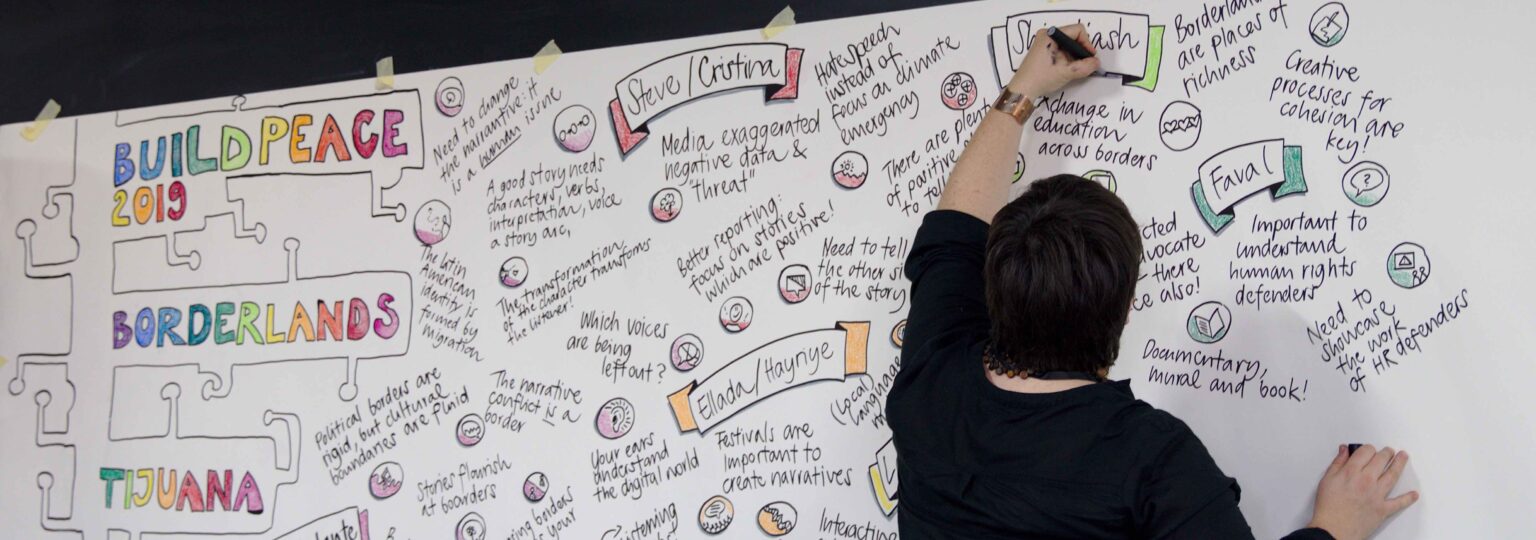 BUILD PEACE
2019
BORDERLANDS
TIJUANA
Need to change
the narrantive: it
is a human issue
A good story needs
characters, verbs,
interpretation, voice
a story arc,
The latin
American
identity is
formed by
migration
The transformation
of the character transforms
the listener!
Political borders are
rigid, but cultural
boundaries are fluid
The narrative
conflict is a
border
Stories flourish
at boarders
Steve/Cristina
Media exaggerated
negative data &
"threat"
Hatespeech
instead of
focus on climate
emergency
Better reporting:
focus on stories
which are positive!
There are plenty
of positive
to tell
Need to tell
the other
of the story
Which voices
are being
left out?
Your ears
understand
the digital world
Ellada/Hayriye
(Local)
Festivals are
important to
create narratives
Interacting
Borderlands
are places of
richness
Xchange in
education
across borders
Creative
processes for
cohesion are
key!
Faval
Important to
understand
human rights
defenders
there
also!
Documentary,
mural and book!
Need to
showcase
the work
of HR defenders